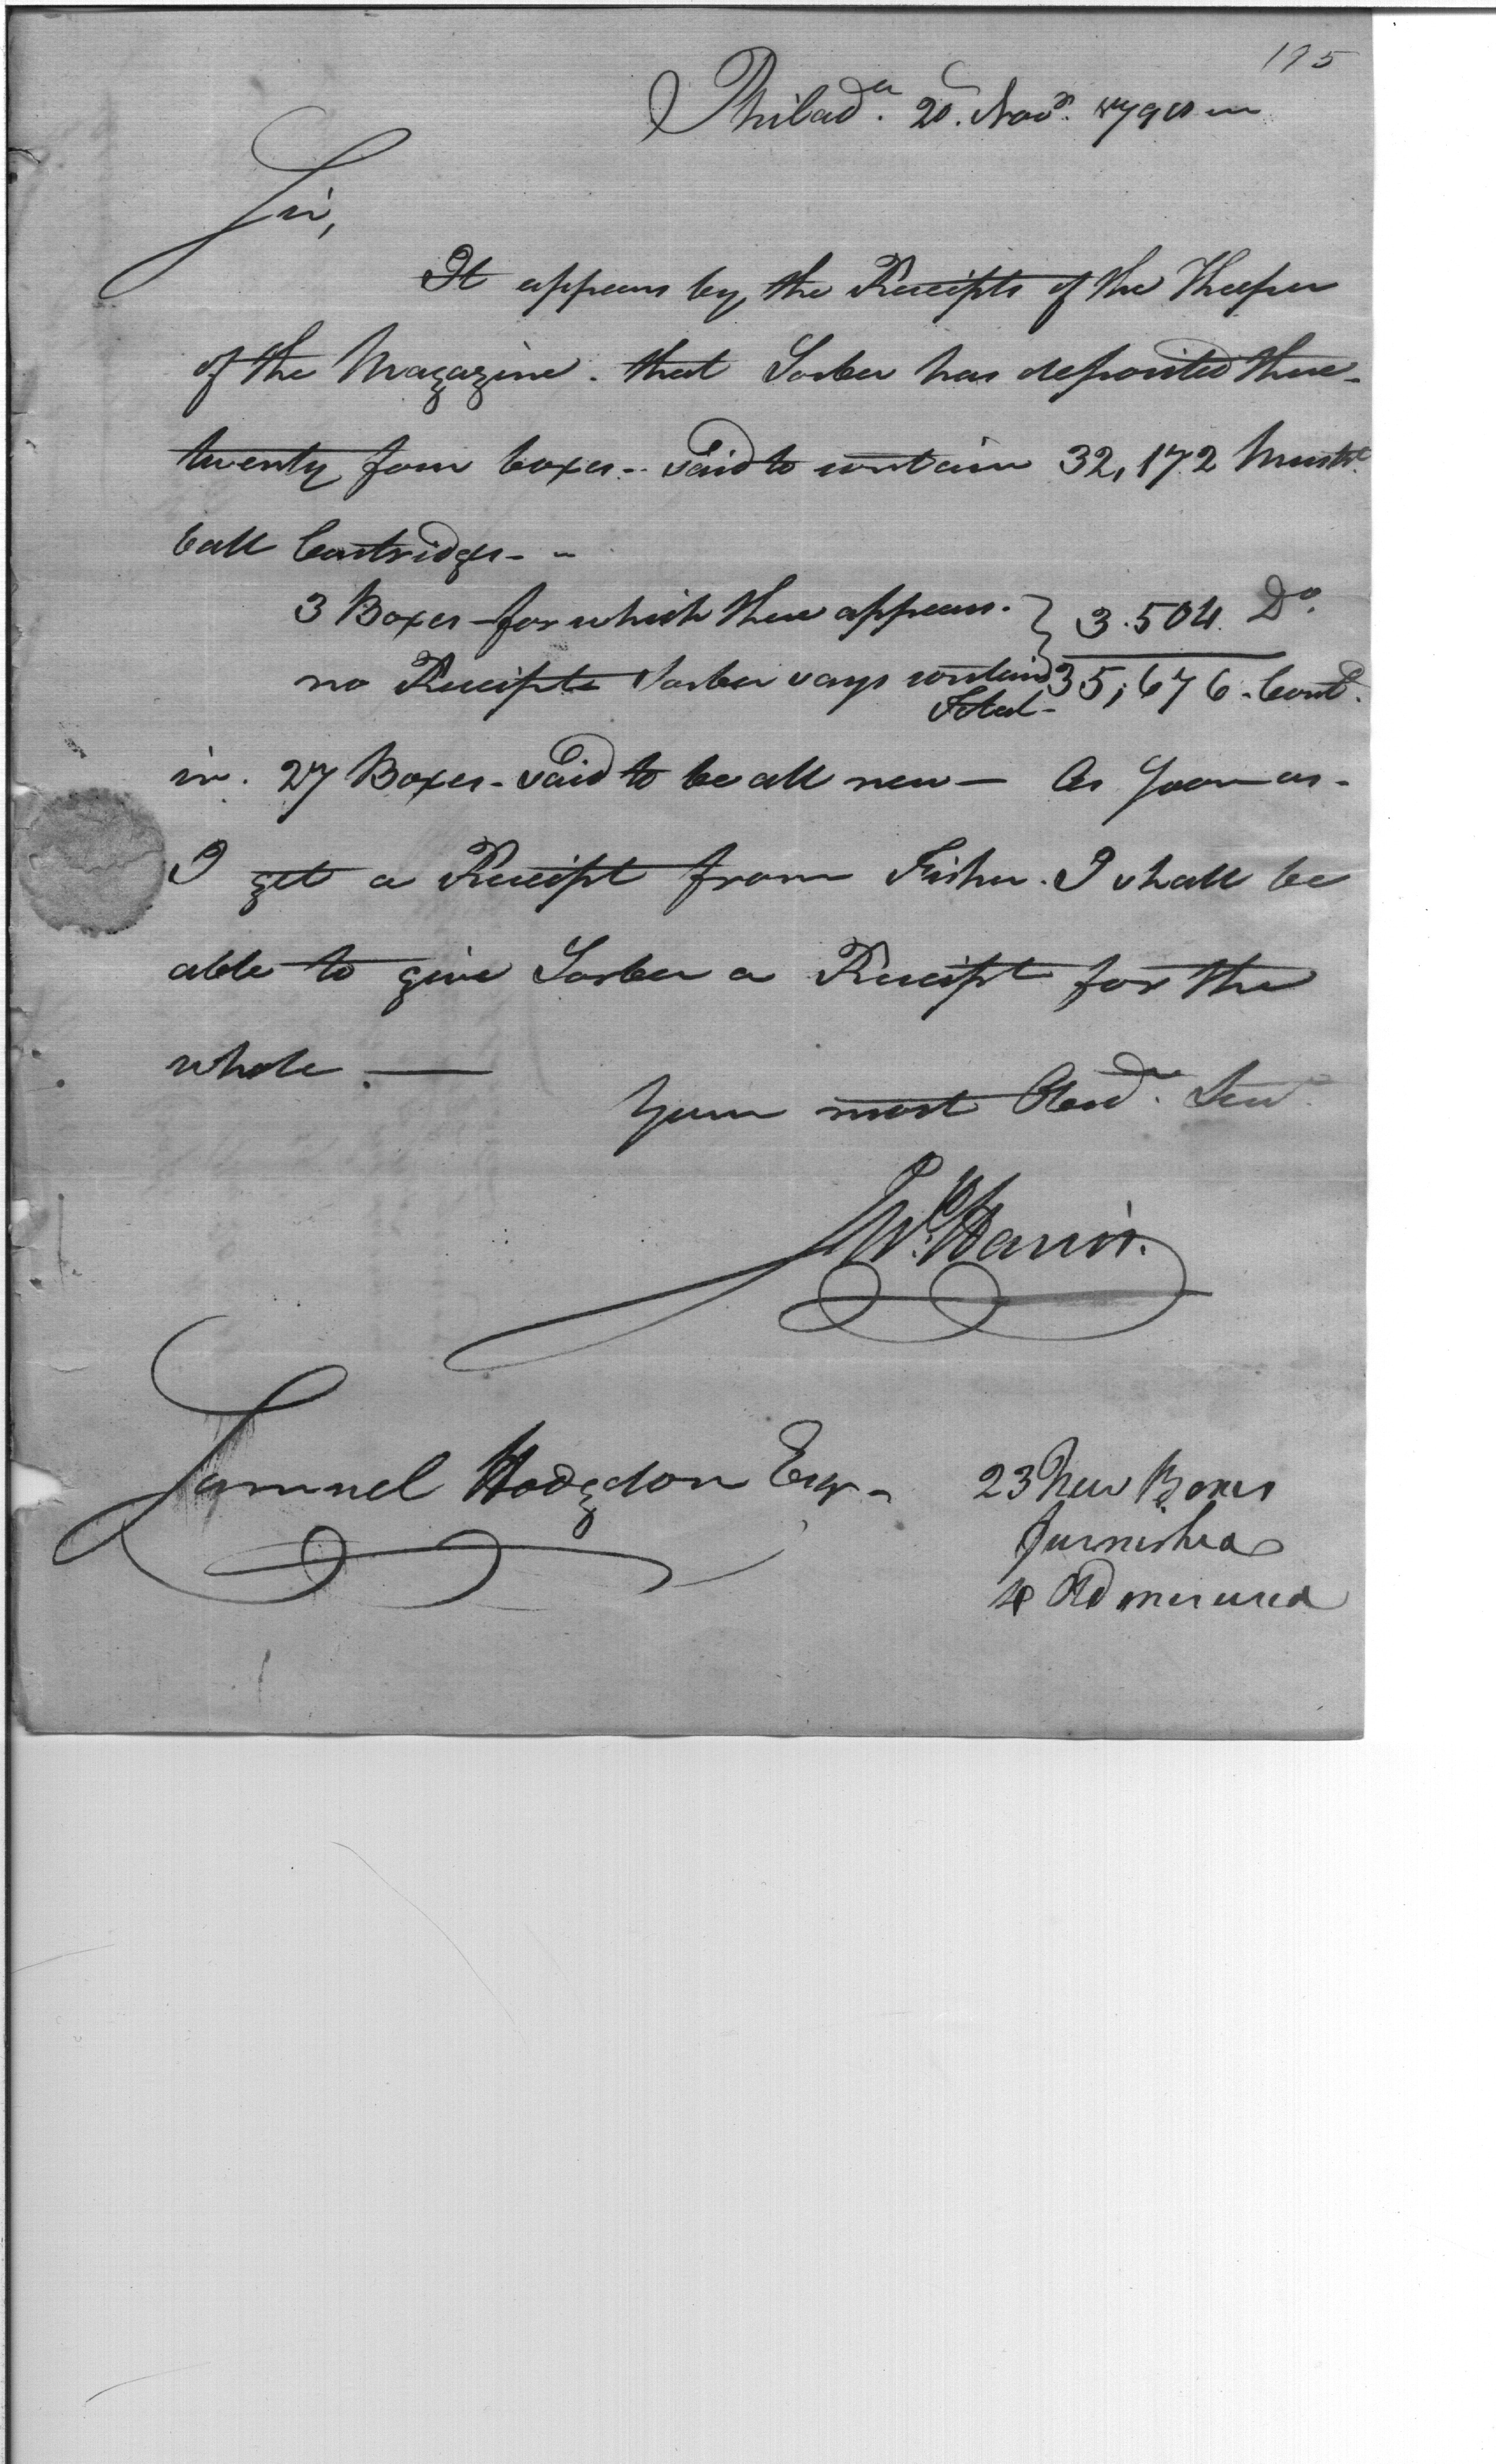 175
Philad.a 20. Novr.
Sir,
It appears by the Receipts of the Keeper
of the Magazine. that Sorber has deposited there-
twenty four boxes- said to contain 32,172 Muskt.
ball Cartridges- -
3 Boxes - for which there appears. } 3.504. Do.
no Receipts Sorber says contain'd 35,676- Cartd.
Total-
in. 27 Boxes- said to be all new - As soon as-
I get a Receipt from Fisher. I shall be
able to give Sorber a Receipt for the
whole. -
Your most Obed. Serv.
Harris.
Samuel Hodgdon Esqr-
23 New Boxes
furnished
4 Old ones used